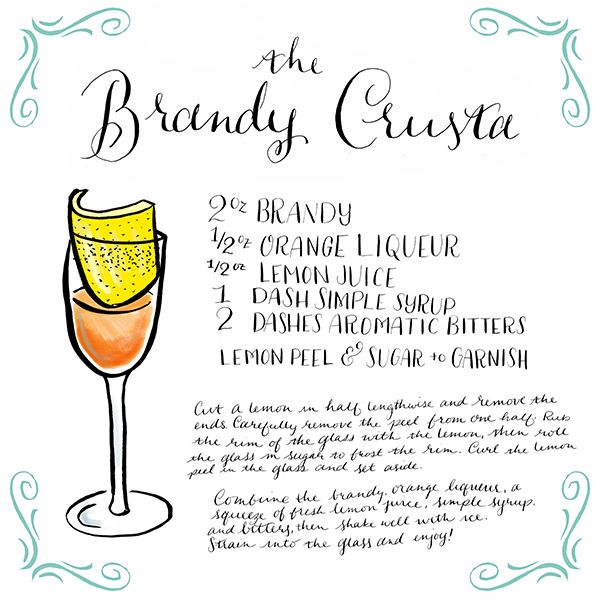 the
Brandy Crusta
2 oz BRANDY
1/2 oz ORANGE LIQUEUR
1/2 oz LEMON JUICE
1 DASH SIMPLE SYRUP
2 DASHES AROMATIC BITTERS
LEMON PEEL & SUGAR to GARNISH
Cut a lemon in half lengthwise and remove the
ends. Carefully remove the peel from one half. Rub
the rim of the glass with the lemon, then roll
the glass in sugar to frost the rim. Curl the lemon
peel in the glass and set aside.
Combine the brandy, orange liqueur, a
squeeze of fresh lemon juice, simple syrup.
and bitters, then shake well with ice.
Strain into the glass and enjoy!